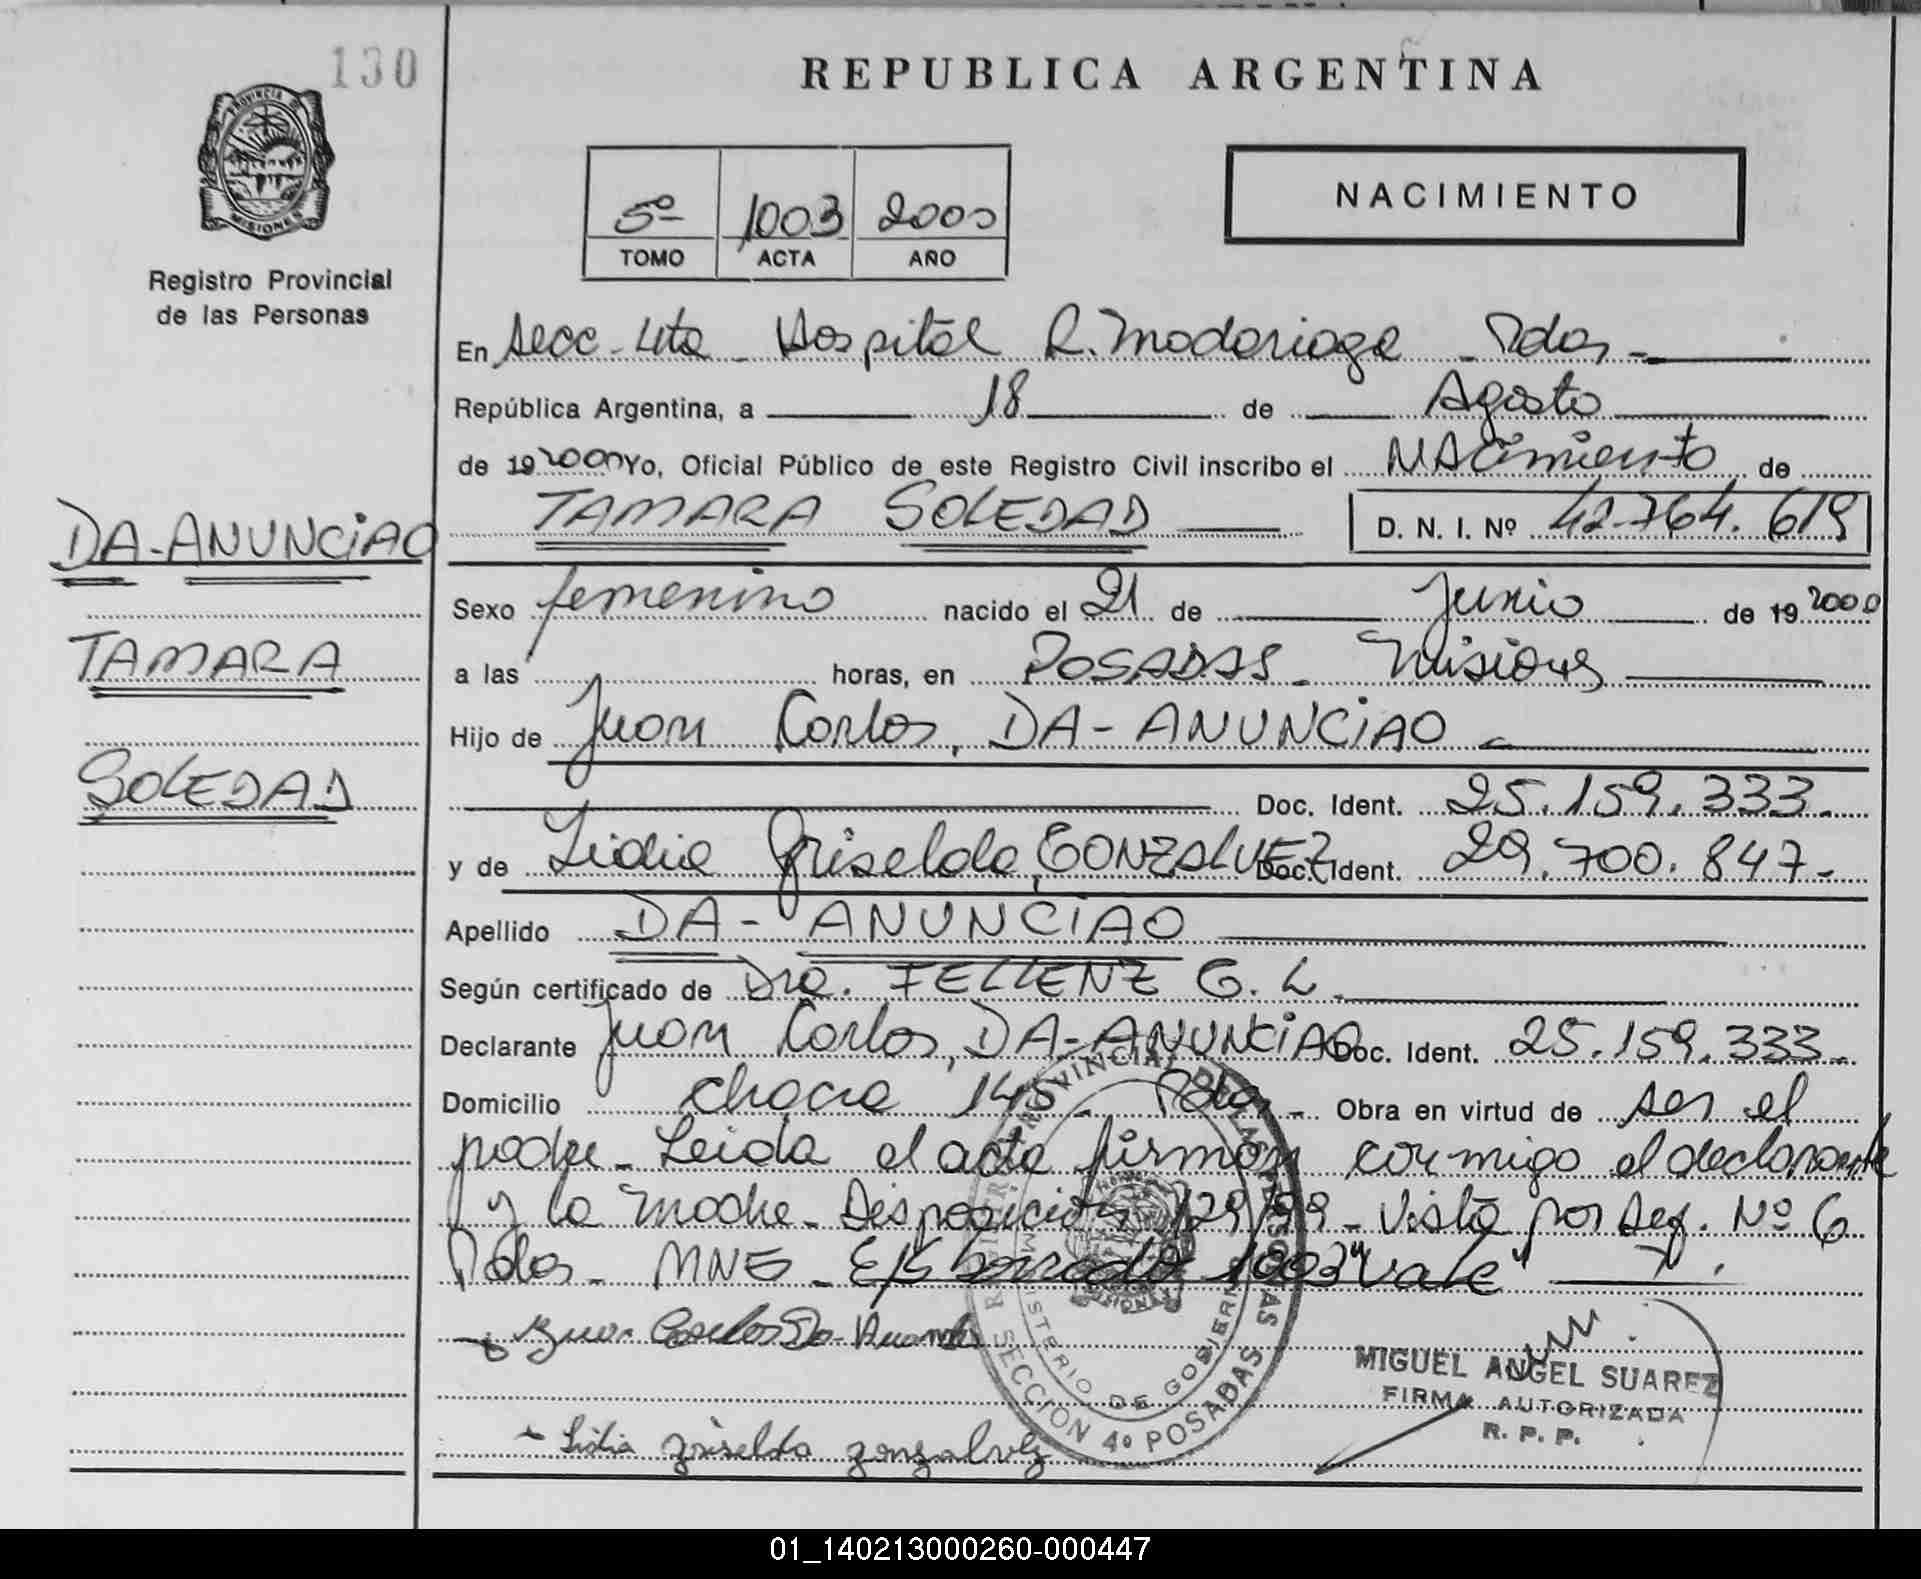 130
REPUBLICA ARGENTINA
PROVINCIA DE
MISIONES
Registro Provincial
de las Personas
5º 1003 2000
TOMO ACTA AÑO
NACIMIENTO
En Secc. 4ta - Hospital R. Madariaga - Pdas -
República Argentina, a 18 de Agosto
de 19 2000 Yo, Oficial Público de este Registro Civil inscribo el NACimiento de
TAMARA SOLEDAD D. N. I. Nº 42.764.619
DA-ANUNCiAO
TAMARA
SOLEDAD
Sexo femenino nacido el 21 de Junio de 19 2000
a las horas, en POSADAS - Misiones
Hijo de Juan Carlos, DA-ANUNCiAO
Doc. Ident. 25.159.333.
y de Lidia Griselda, GONZALVEZ Doc. Ident. 29.700.847.
Apellido DA-ANUNCIAO
Según certificado de Dra. FELLENZ G. L.
Declarante Juan Carlos, DA-ANUNCiAO Doc. Ident. 25.159.333.
Domicilio chacra 145 - Pdas - Obra en virtud de ser el
padre - Leida el acta firman conmigo el declarante
y la madre - Disposición 129/99 - Vista por Seg. Nº 6
Pdas - MNES - E/S borrado 1003 "vale"
Juan Carlos Da-
Lidia griselda gonzalvez
REGISTRO PROVINCIAL DE LAS PERSONAS
MINISTERIO DE GOBIERNO
MISIONES
SECCION 4º POSADAS
MIGUEL ANGEL SUAREZ
FIRMA AUTORIZADA
R. P. P.
01_140213000260-000447